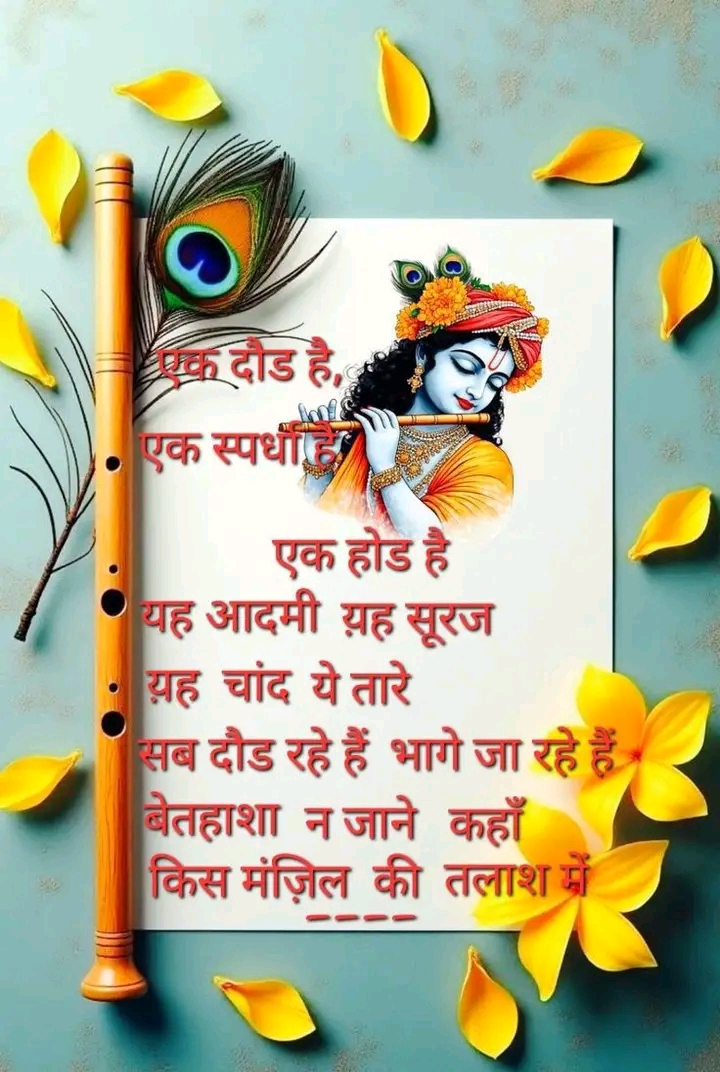 एक दौड है,
एक स्पर्धा है
एक होड है
यह आदमी य़ह सूरज
य़ह चांद ये तारे
सब दौड रहे हैं भागे जा रहे हैं
बेतहाशा न जाने कहाँ
किस मंज़िल की तलाश में
----